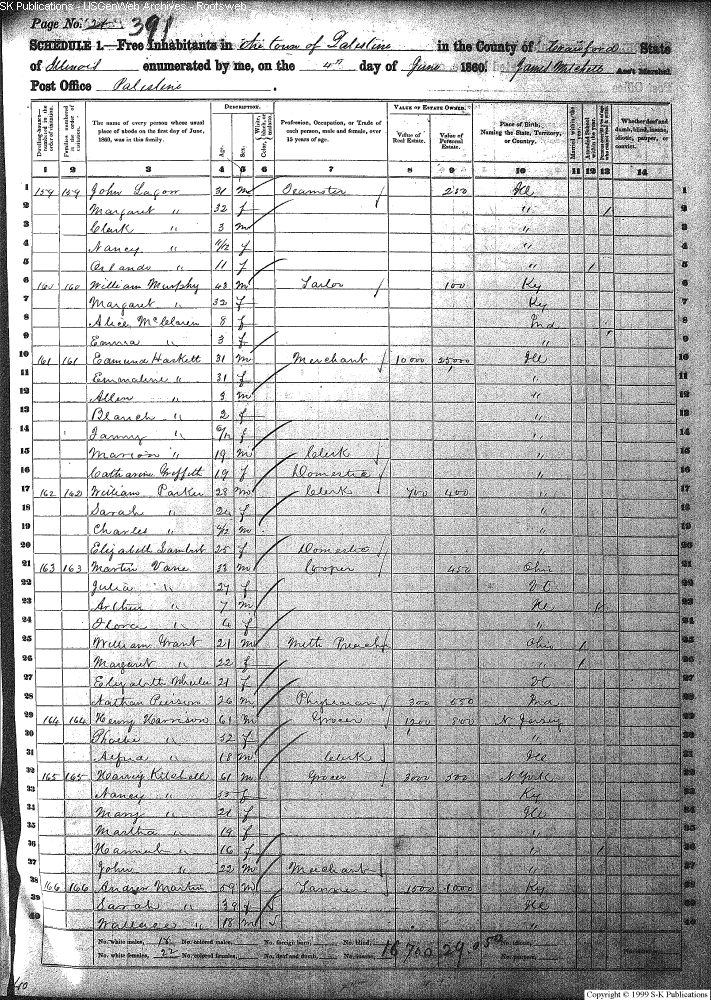 SK Publications - USGenWeb Archives - Rootsweb
Page No. 24 391
SCHEDULE 1.—Free Inhabitants in the town of Palestine in the County of Crawford State
of Illinois enumerated by me, on the 4th day of June 1860. Ass't Marshal.
Post Office Palestine .
Dwelling-houses— numbered in the order of visitation. Families numbered in the order of visitation. The name of every person whose usual place of abode on the first day of June, 1860, was in this family. DESCRIPTION. Age. Sex. Color, White, black, or mulatto. Profession, Occupation, or Trade of each person, male and female, over 15 years of age. VALUE OF ESTATE OWNED. Value of Real Estate. Value of Personal Estate. Place of Birth, Naming the State, Territory, or Country. Married within the year. Attended School within the year. Whether deaf and dumb, blind, insane, idiotic, pauper, or convict.
1 2 3 4 5 6 7 8 9 10 11 12 13 14
1 159 159 John Lagow 31 m Teamster / 250 Ill 1
2 Margaret " 32 f " / 2
3 Clark " 3 m " 3
4 Nancy " /12 f " 4
5 Orlando " 11 f " / 5
6 160 160 William Murphy 43 m Tailor / 100 Ky 6
7 Margaret " 32 f Ky 7
8 Alice McClaren 8 f Ind 8
9 Emma " 3 f " 9
10 161 161 Edmund Haskett 31 m Merchant / 10000 25000 Ill 10
11 Emmaline " 31 f " 11
12 Allen " 3 m " 12
13 Blanch " 2 f " 13
14 Fanny " 6/12 f " 14
15 Marion " 19 m Clerk / " 15
16 Catharine Griffith 19 f Domestic / " 16
17 162 162 William Parker 28 m Clerk / 700 400 " 17
18 Sarah " 24 f " 18
19 Charles " /12 m " 19
20 Elizabeth Lambert 25 f Domestic / " 20
21 163 163 Martin Vane 33 m Cooper / 450 Ohio 21
22 Julia " 27 f Vt 22
23 Arthur " 7 m Ill / 23
24 Flora " 4 f " 24
25 William Grant 21 m Meth Preach / Ohio / 25
26 Margaret " 22 f " / 26
27 Elizabeth Wheeler 21 f Vt 27
28 Nathan Pierson 26 m Physician / 300 650 Ind 28
29 164 164 Henry Harrison 61 m Grocer / 1200 800 N Jersey 29
30 Phoebe " 52 f " 30
31 " 18 m Clerk / Ill 31
32 165 165 Harvey Kitchell 61 m Grocer / 3000 500 N York 32
33 Nancy " 55 f Ky 33
34 Mary " 21 f Ill 34
35 Martha " 19 f " 35
36 Hannah " 16 f " / 36
37 John " 22 m Merchant / " 37
38 166 166 Andrew Martin 59 m Tanner / 1500 1000 Ky 38
39 Sarah " 39 f Ill 39
40 Wallace " 18 m " 40
No. white males, 18 No. colored males, No. foreign born, No. blind, 16700 29.050
No. white females, 22 No. colored females, No. deaf and dumb, No. insane,
40
Copyright © 1999 S-K Publications